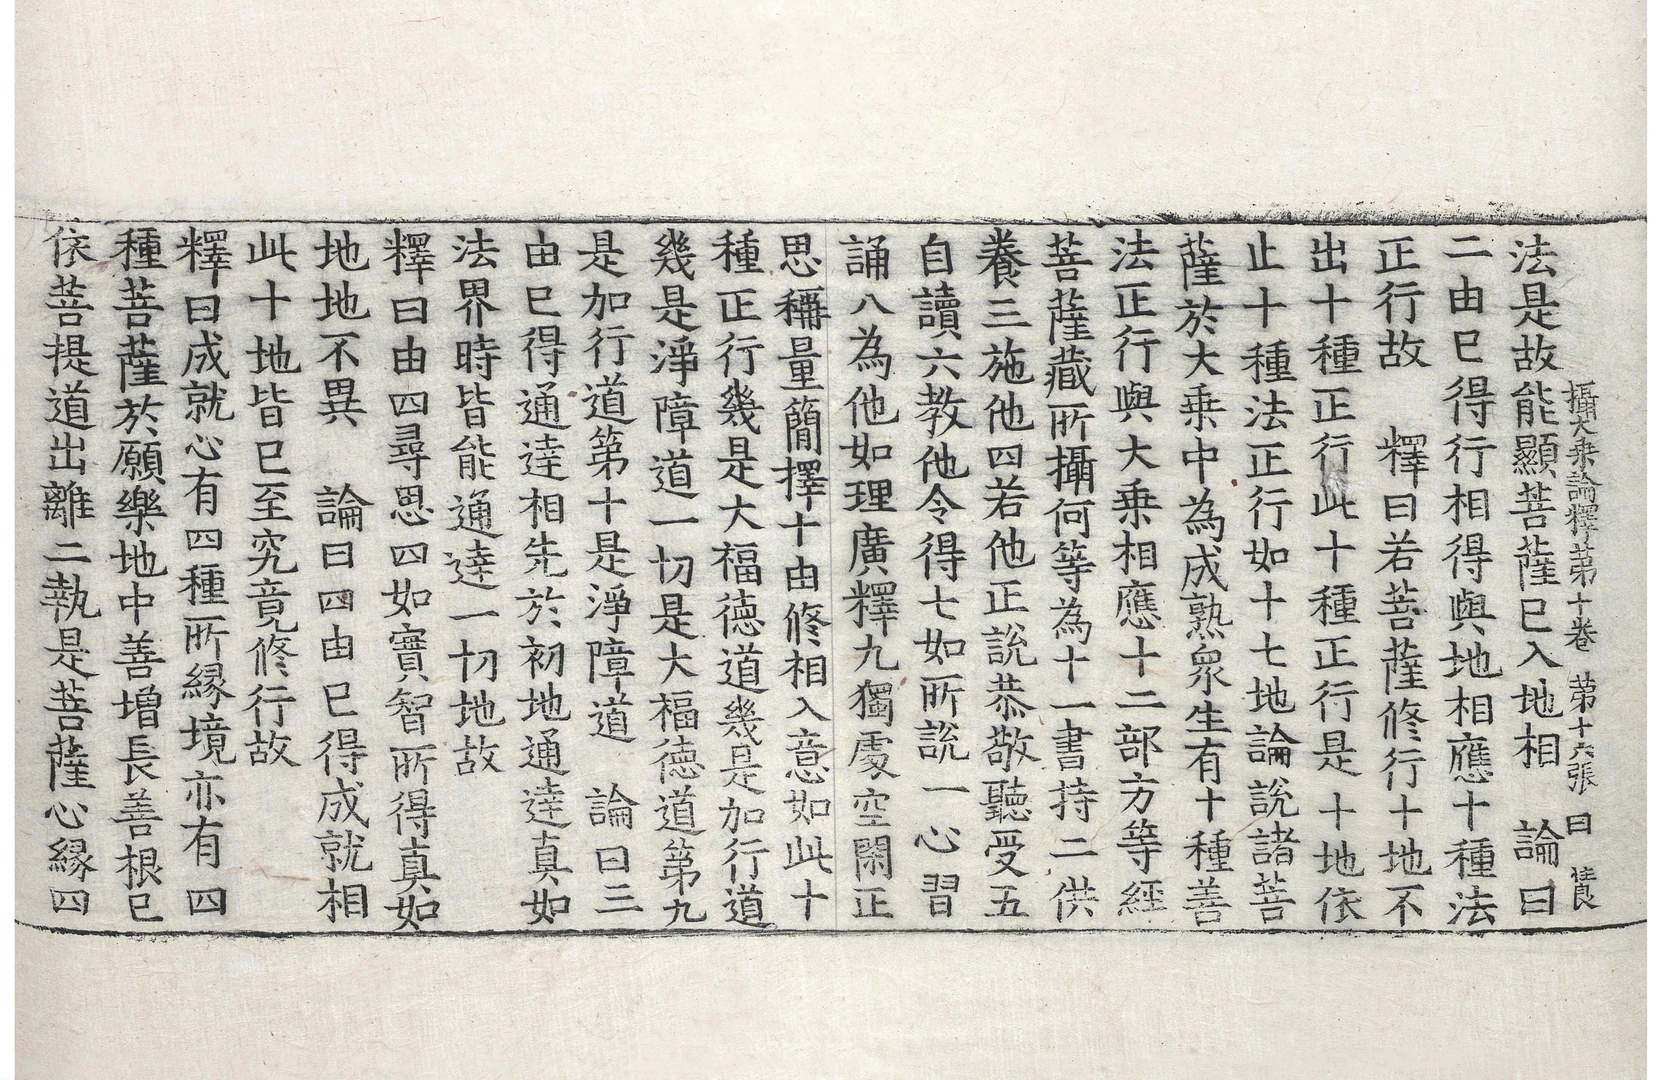 攝大乘論釋第十卷 第十六張 曰
法是故能顯菩薩已入地相 論曰
二由已得行行相得與地相應十種法
正行故 釋曰若菩薩修行十地不
出十種正行此十種正行是十地依
止十種法正行如十七地論說諸菩
薩於大乘中為成熟衆生有十種善
法正行與大乘相應十二部方等經
菩薩藏所攝何等為十一書持二供
養三施他四若他正說恭敬聽受五
自讀六教他令得七如所說一心習
誦八為他如理廣釋九獨處空閑正
思稱量簡擇十由修相入意如此十
種正行幾是大福德道幾是加行道
幾是淨障道一切是大福德道第九
是加行道第十是淨障道 論曰三
由已得通達相先於初地通達真如
法界時皆能通達一切地故
釋曰由四尋思四如實智所得真如
地地不異 論曰四由已得成就相
此十地皆已至究竟修行故
釋曰成就心有四種所緣境亦有四
種菩薩於願樂地中善增長善根已
依菩提道出離二執是菩薩心緣四